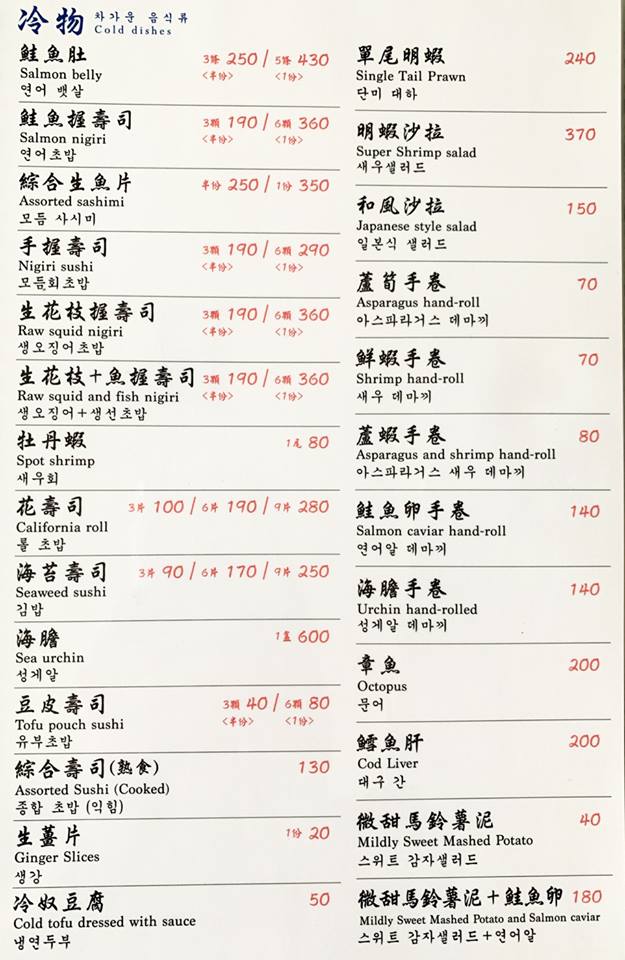 冷物 차가운 음식류
Cold dishes
鮭魚肚 3條 250 / 5條 430
Salmon belly <半份> <1份>
연어 뱃살
鮭魚握壽司 3顆 190 / 6顆 360
Salmon nigiri <半份> <1份>
연어초밥
綜合生魚片 半份 250 / 1份 350
Assorted sashimi
모듬 사시미
手握壽司 3顆 190 / 6顆 290
Nigiri sushi <半份> <1份>
모듬회초밥
生花枝握壽司 3顆 190 / 6顆 360
Raw squid nigiri <半份> <1份>
생오징어초밥
生花枝+魚握壽司 3顆 190 / 6顆 360
Raw squid and fish nigiri <半份> <1份>
생오징어+생선초밥
牡丹蝦 1尾 80
Spot shrimp
새우회
花壽司 3片 100 / 6片 190 / 9片 280
California roll
롤 초밥
海苔壽司 3片 90 / 6片 170 / 9片 250
Seaweed sushi
김밥
海膽 1盒 600
Sea urchin
성게알
豆皮壽司 3顆 40 / 6顆 80
Tofu pouch sushi <半份> <1份>
유부초밥
綜合壽司(熟食) 130
Assorted Sushi (Cooked)
종합 초밥 (익힘)
生薑片 1份 20
Ginger Slices
생강
冷奴豆腐 50
Cold tofu dressed with sauce
냉연두부
單尾明蝦 240
Single Tail Prawn
단미 대하
明蝦沙拉 370
Super Shrimp salad
새우샐러드
和風沙拉 150
Japanese style salad
일본식 샐러드
蘆筍手卷 70
Asparagus hand-roll
아스파라거스 데마끼
鮮蝦手卷 70
Shrimp hand-roll
새우 데마끼
蘆蝦手卷 80
Asparagus and shrimp hand-roll
아스파라거스 새우 데마끼
鮭魚卵手卷 140
Salmon caviar hand-roll
연어알 데마끼
海膽手卷 140
Urchin hand-rolled
성게알 데마끼
章魚 200
Octopus
문어
鱈魚肝 200
Cod Liver
대구 간
微甜馬鈴薯泥 40
Mildly Sweet Mashed Potato
스위트 감자샐러드
微甜馬鈴薯泥+鮭魚卵 180
Mildly Sweet Mashed Potato and Salmon caviar
스위트 감자샐러드+연어알